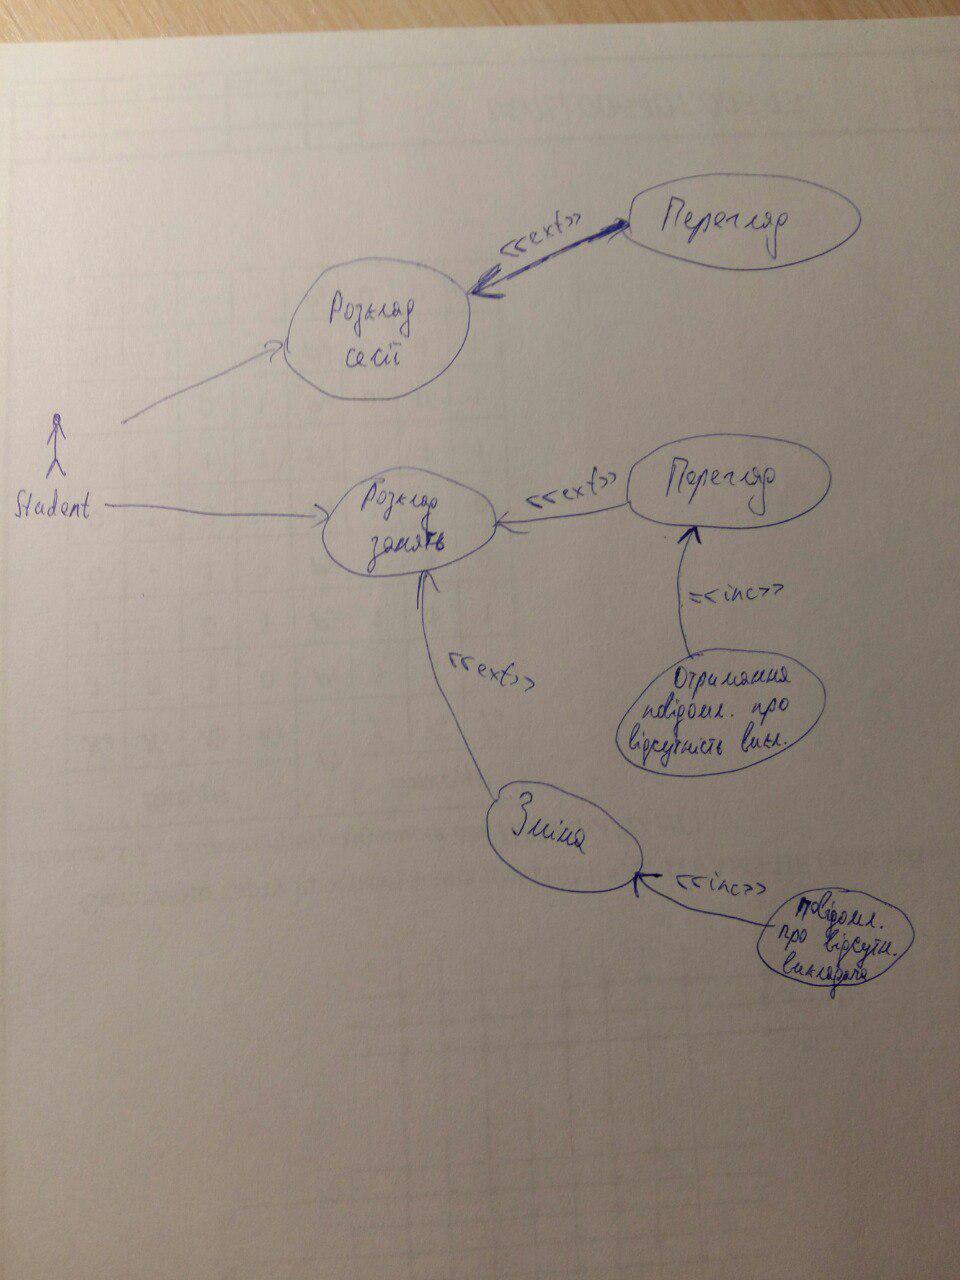 <<ext>>
Перегляд
Розклад
сесії
Student
Розклад
занять
<<ext>>
Перегляд
<<inc>>
Отримання
повідомл. про
відсутність викл.
<<ext>>
Зміна
<<inc>>
Повідомл.
про відсутн.
викладача